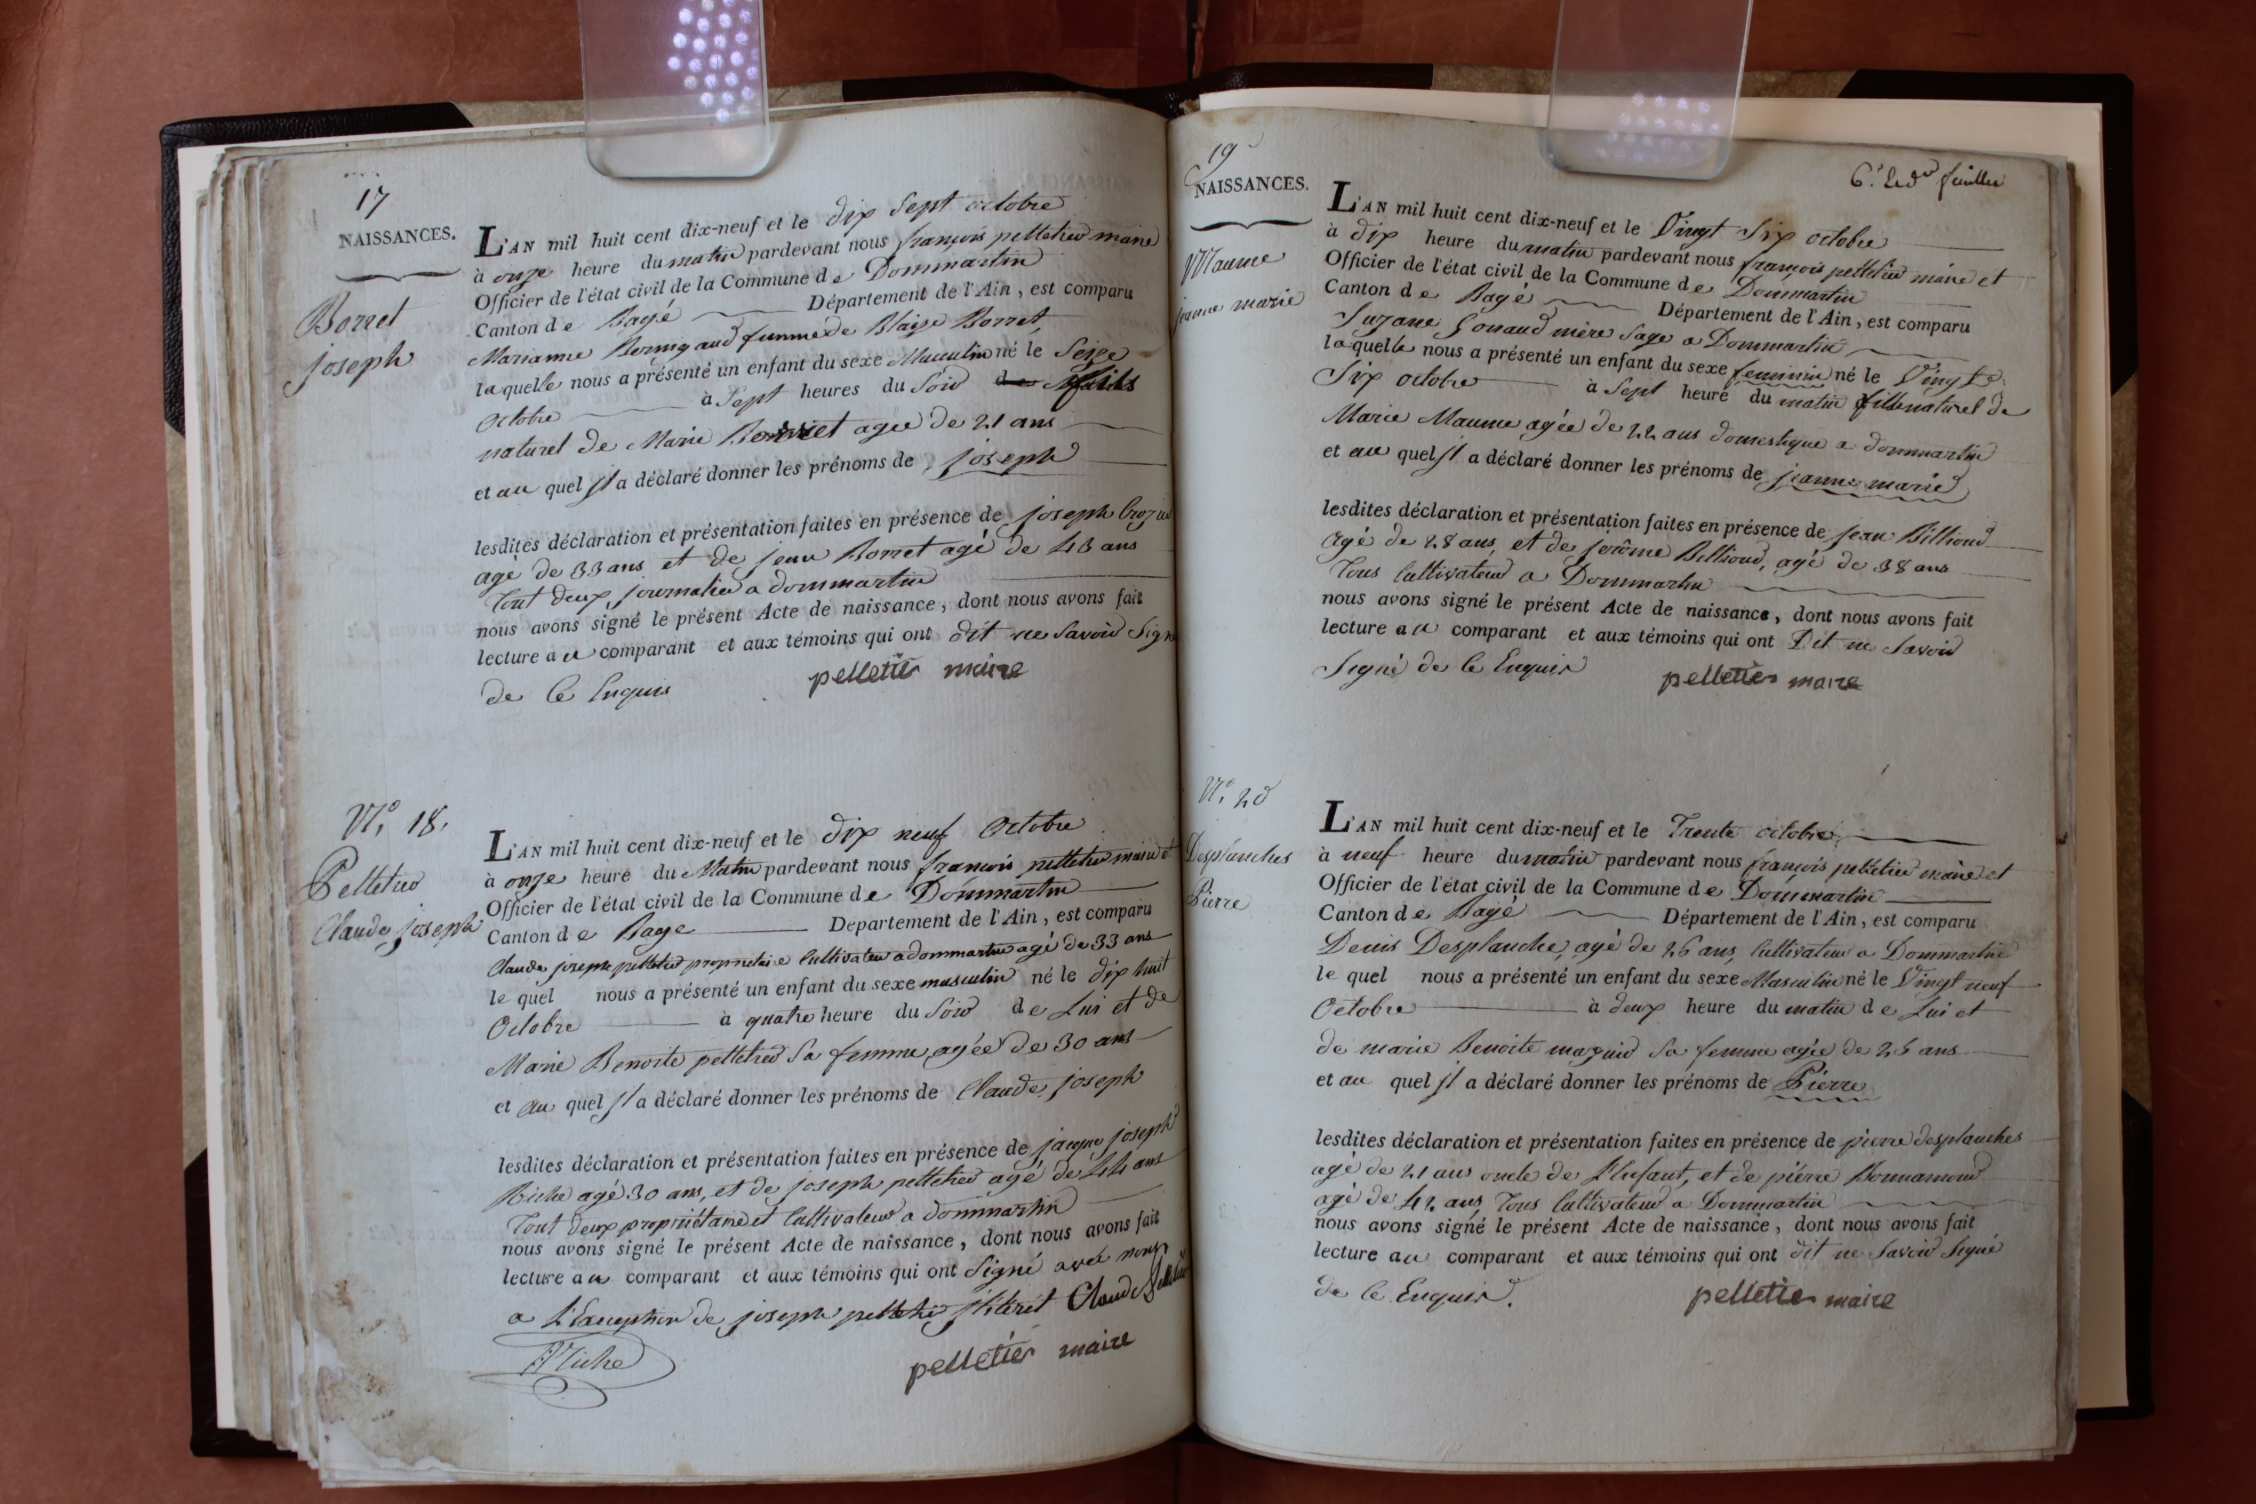 17
NAISSANCES.
Borret
joseph
L'AN mil huit cent dix-neuf et le dix Sept octobre
à onze heure du matin pardevant nous françois pelletier maire
Officier de l'état civil de la Commune de Dommartin
Canton de Bagé Département de l'Ain, est comparu
Marianne femme de Blaise Borret
laquelle nous a présenté un enfant du sexe Masculin né le Seize
Octobre à Sept heures du Soir fils
naturel de Marie Borret agee de 21 ans
et au quel Jl a déclaré donner les prénoms de joseph
lesdites déclaration et présentation faites en présence de joseph
agé de 33 ans et de jean Borret agé de 43 ans
Tout deux journalier a dommartin
nous avons signé le présent Acte de naissance, dont nous avons fait
lecture au comparant et aux témoins qui ont dit ne Savoir Signé
de ce Enquis pelletier maire
N.° 18.
Pelletier
Claude joseph
L'AN mil huit cent dix-neuf et le dix neuf Octobre
à onze heure du Matin pardevant nous françois pelletier maire et
Officier de l'état civil de la Commune de Dommartin
Canton de Bage Departement de l'Ain, est comparu
Claude joseph pelletier proprietaire Cultivateur a dommartin agé de 33 ans
le quel nous a présenté un enfant du sexe masculin né le dix huit
Octobre à quatre heure du Soir de Lui et de
Marie Benoite pelletier Sa femme agée de 30 ans
et au quel Jl a déclaré donner les prénoms de Claude joseph
lesdites déclaration et présentation faites en présence de jacque joseph
Riche agé 30 ans, et de joseph pelletier agé de 44 ans
Tout deux propriétaire et Cultivateur a dommartin
nous avons signé le présent Acte de naissance, dont nous avons fait
lecture au comparant et aux témoins qui ont Signé avec nous
a L'Exception de joseph pelletier jlliteret Claude Pelletier
Riche pelletier maire
19
NAISSANCES.
Maume
jeanne marie
6.e et der feuillet
L'AN mil huit cent dix-neuf et le Vingt Six octobre
à dix heure du matin pardevant nous françois pelletier maire et
Officier de l'état civil de la Commune de Dommartin
Canton de Bagé Département de l'Ain, est comparu
Suzane Gonaud mère Sage a Dommartin
laquelle nous a présenté un enfant du sexe feminin né le Vingt
Six octobre à Sept heure du matin fille naturel de
Marie Maume agée de 22 ans domestique a dommartin
et au quel Jl a déclaré donner les prénoms de jeanne marie
lesdites déclaration et présentation faites en présence de Jean Billioud
Agé de 28 ans, et de jerôme Billioud, agé de 38 ans
Tous Cultivateur a Dommartin
nous avons signé le présent Acte de naissance, dont nous avons fait
lecture au comparant et aux témoins qui ont Dit ne Savoir
Signé de ce Enquis pelletier maire
N.° 20
Desplanches
Pierre
L'AN mil huit cent dix-neuf et le Trente octobre
à neuf heure du matin pardevant nous françois pelletier maire et
Officier de l'état civil de la Commune de Dommartin
Canton de Bagé Département de l'Ain, est comparu
Denis Desplanche, agé de 26 ans, Cultivateur a Dommartin
le quel nous a présenté un enfant du sexe Masculin né le Vingt neuf
Octobre à deux heure du matin de Lui et
de marie Benoite mazuir Sa femme agée de 25 ans
et au quel Jl a déclaré donner les prénoms de Pierre
lesdites déclaration et présentation faites en présence de pierre desplanches
agé de 21 ans oncle de L'Enfant, et de pierre Bonnamour
agé de 42 ans, Tous Cultivateur a Dommartin
nous avons signé le présent Acte de naissance, dont nous avons fait
lecture au comparant et aux témoins qui ont dit ne Savoir Signé
de ce Enquis. pelletier maire